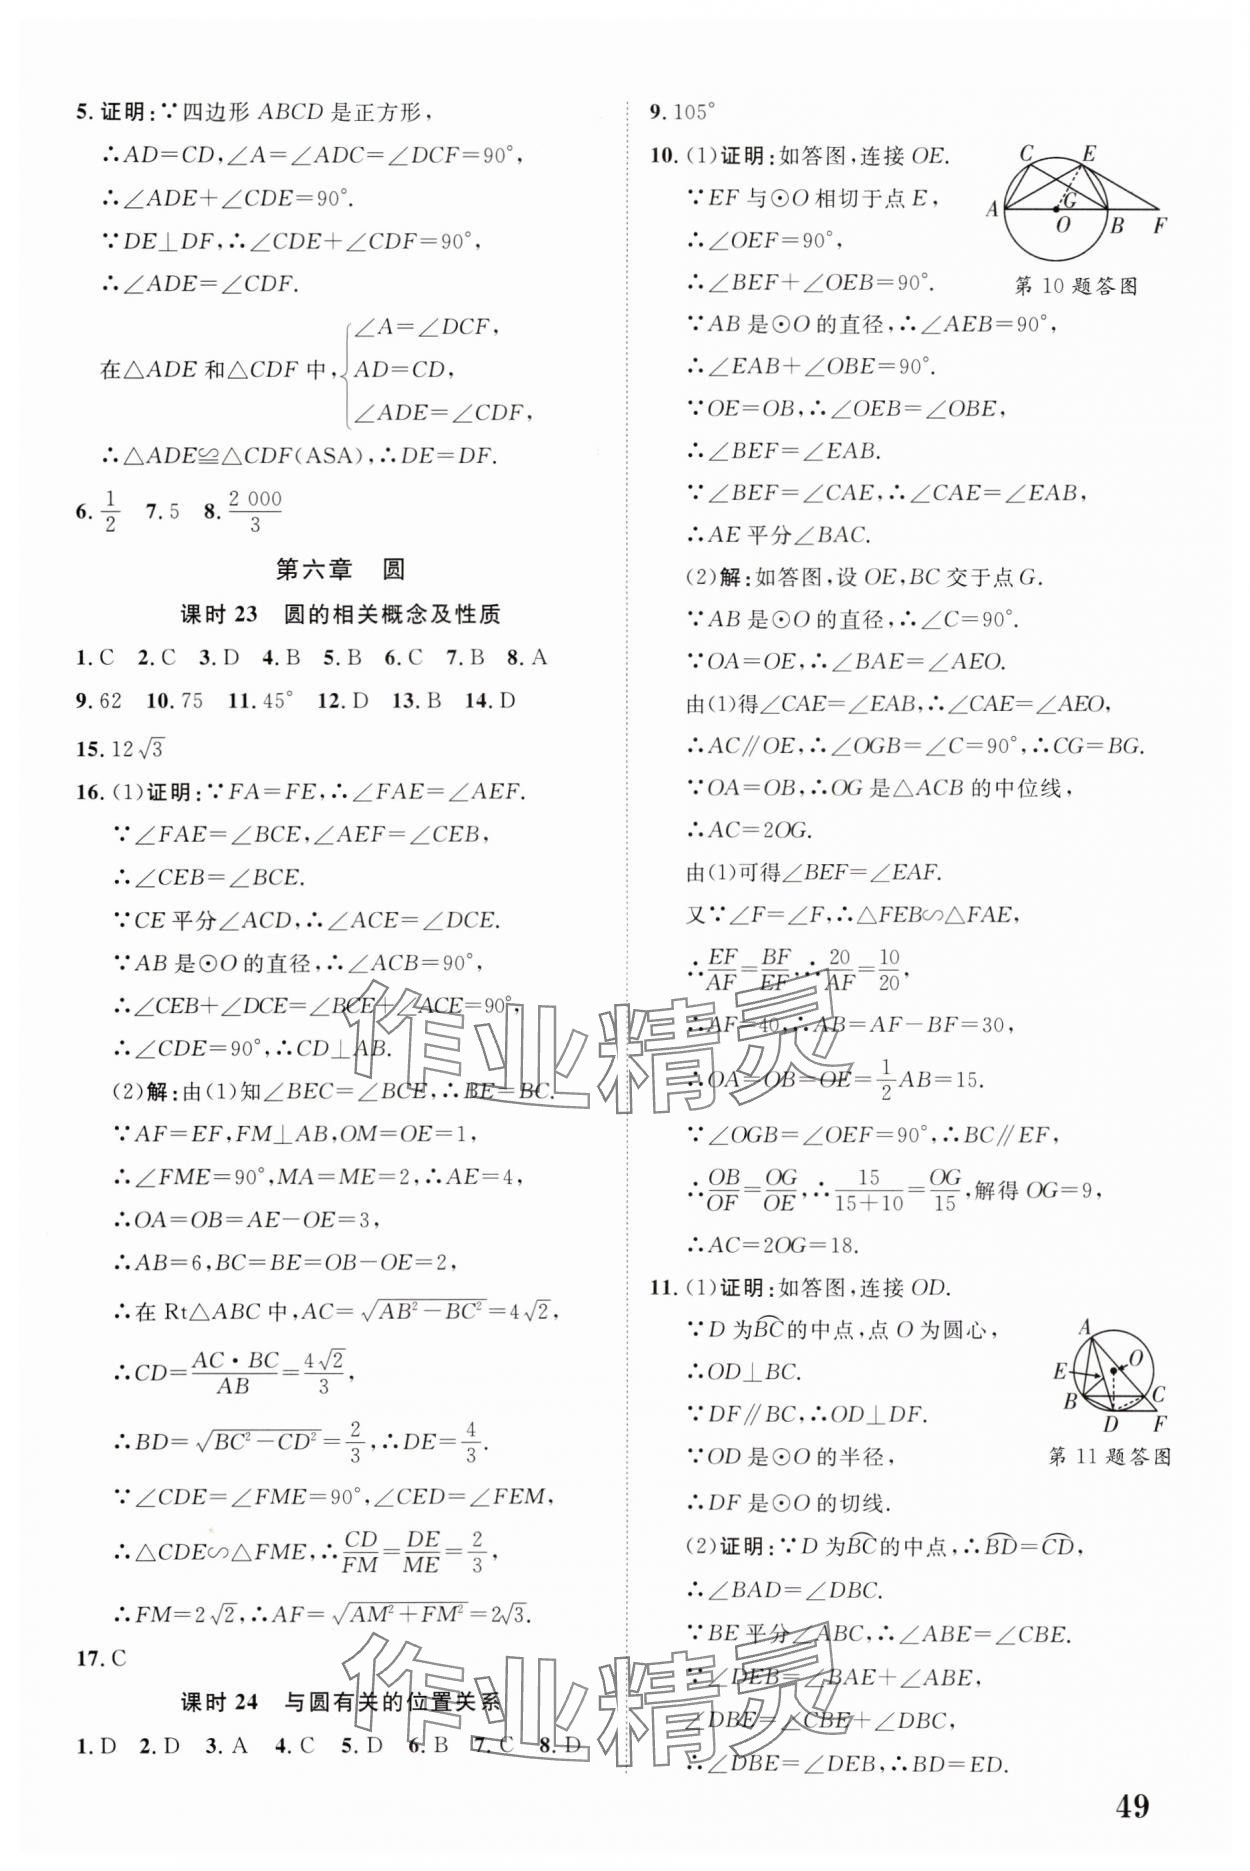 5.证明:∵四边形ABCD是正方形,
∴AD=CD,∠A=∠ADC=∠DCF=90°,
∴∠ADE+∠CDE=90°.
∵DE⊥DF,∴∠CDE+∠CDF=90°,
∴∠ADE=∠CDF.
在△ADE和△CDF中,{∠A=∠DCF,
AD=CD,
∠ADE=∠CDF,
∴△ADE≌△CDF(ASA),∴DE=DF.
6.1/2 7.5 8.2 000/3
第六章 圆
课时23 圆的相关概念及性质
1.C 2.C 3.D 4.B 5.B 6.C 7.B 8.A
9.62 10.75 11.45° 12.D 13.B 14.D
15.12√3
16.(1)证明:∵FA=FE,∴∠FAE=∠AEF.
∵∠FAE=∠BCE,∠AEF=∠CEB,
∴∠CEB=∠BCE.
∵CE平分∠ACD,∴∠ACE=∠DCE.
∵AB是⊙O的直径,∴∠ACB=90°,
∴∠CEB+∠DCE=∠BCE+∠ACE=90°,
∴∠CDE=90°,∴CD⊥AB.
(2)解:由(1)知∠BEC=∠BCE,∴BE=BC.
∵AF=EF,FM⊥AB,OM=OE=1,
∴∠FME=90°,MA=ME=2,∴AE=4,
∴OA=OB=AE-OE=3,
∴AB=6,BC=BE=OB-OE=2,
∴在Rt△ABC中,AC=√(AB²-BC²)=4√2,
∴CD=AC·BC/AB=4√2/3,
∴BD=√(BC²-CD²)=2/3,∴DE=4/3.
∵∠CDE=∠FME=90°,∠CED=∠FEM,
∴△CDE∽△FME,∴CD/FM=DE/ME=2/3,
∴FM=2√2,∴AF=√(AM²+FM²)=2√3.
17.C
课时24 与圆有关的位置关系
1.D 2.D 3.A 4.C 5.D 6.B 7.C 8.D
9.105°
10.(1)证明:如答图,连接OE.
∵EF与⊙O相切于点E,
∴∠OEF=90°,
∴∠BEF+∠OEB=90°.
C E A G O B F
第10题答图
∵AB是⊙O的直径,∴∠AEB=90°,
∴∠EAB+∠OBE=90°.
∵OE=OB,∴∠OEB=∠OBE,
∴∠BEF=∠EAB.
∵∠BEF=∠CAE,∴∠CAE=∠EAB,
∴AE平分∠BAC.
(2)解:如答图,设OE,BC交于点G.
∵AB是⊙O的直径,∴∠C=90°.
∵OA=OE,∴∠BAE=∠AEO.
由(1)得∠CAE=∠EAB,∴∠CAE=∠AEO,
∴AC∥OE,∴∠OGB=∠C=90°,∴CG=BG.
∵OA=OB,∴OG是△ACB的中位线,
∴AC=2OG.
由(1)可得∠BEF=∠EAF.
又∵∠F=∠F,∴△FEB∽△FAE,
∴EF/AF=BF/EF,∴20/AF=10/20,
∴AF=40,∴AB=AF-BF=30,
∴OA=OB=OE=1/2AB=15.
∵∠OGB=∠OEF=90°,∴BC∥EF,
∴OB/OF=OG/OE,∴15/(15+10)=OG/15,解得OG=9,
∴AC=2OG=18.
11.(1)证明:如答图,连接OD.
∵D为BC⌒的中点,点O为圆心,
∴OD⊥BC.
∵DF∥BC,∴OD⊥DF.
∵OD是⊙O的半径,
∴DF是⊙O的切线.
A O E B C D F
第11题答图
(2)证明:∵D为BC⌒的中点,∴BD⌒=CD⌒,
∴∠BAD=∠DBC.
∵BE平分∠ABC,∴∠ABE=∠CBE.
∵∠DEB=∠BAE+∠ABE,
∠DBE=∠CBE+∠DBC,
∴∠DBE=∠DEB,∴BD=ED.
49
作业精灵
作业精灵